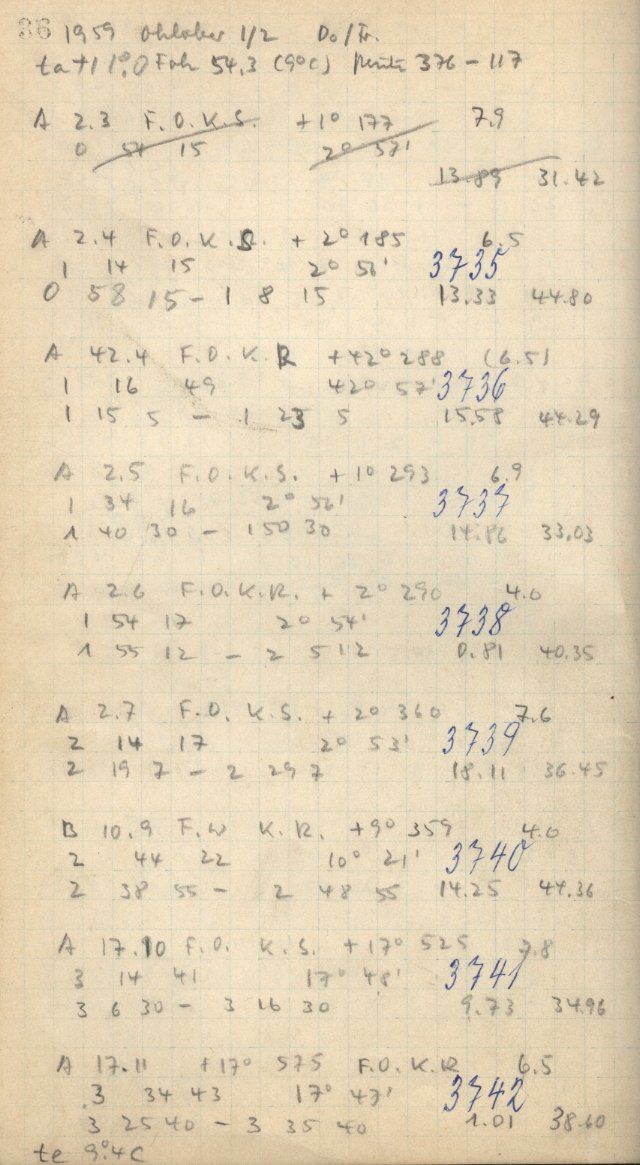 86 1959 Oktober 1/2 Do/Fr.
ta +11°.0 Fok 54,3 (9°C) 376 - 117
A 2.3 F.O.K.S. +1° 177 7.9
0 54 15 2° 57'
13.89 31.42
A 2.4 F.O.K.S. + 2° 185 6.5
1 14 15 2° 56' 3735
0 58 15 - 1 8 15 13.33 44.80
A 42.4 F.O.K.R +42° 288 (6.5)
1 16 49 42° 57' 3736
1 15 5 - 1 23 5 15.58 44.29
A 2.5 F.O.K.S. +1° 293 6.9
1 34 16 2° 56' 3737
1 40 30 - 1 50 30 14.86 33.03
A 2.6 F.O.K.R. + 2° 290 4.0
1 54 17 2° 54' 3738
1 55 12 - 2 5 12 0.81 40.35
A 2.7 F.O. K.S. + 2° 360 7.6
2 14 17 2° 53' 3739
2 19 7 - 2 29 7 18.11 36.45
B 10.9 F.W K.R. +9° 359 4.0
2 44 22 10° 21' 3740
2 38 55 - 2 48 55 14.25 44.36
A 17.10 F.O. K.S. +17° 525 7.8
3 14 41 17° 48' 3741
3 6 30 - 3 16 30 9.73 34.96
A 17.11 +17° 575 F.O.K.R 6.5
3 34 43 17° 47' 3742
3 25 40 - 3 35 40 1.01 38.60
te 9°.4C